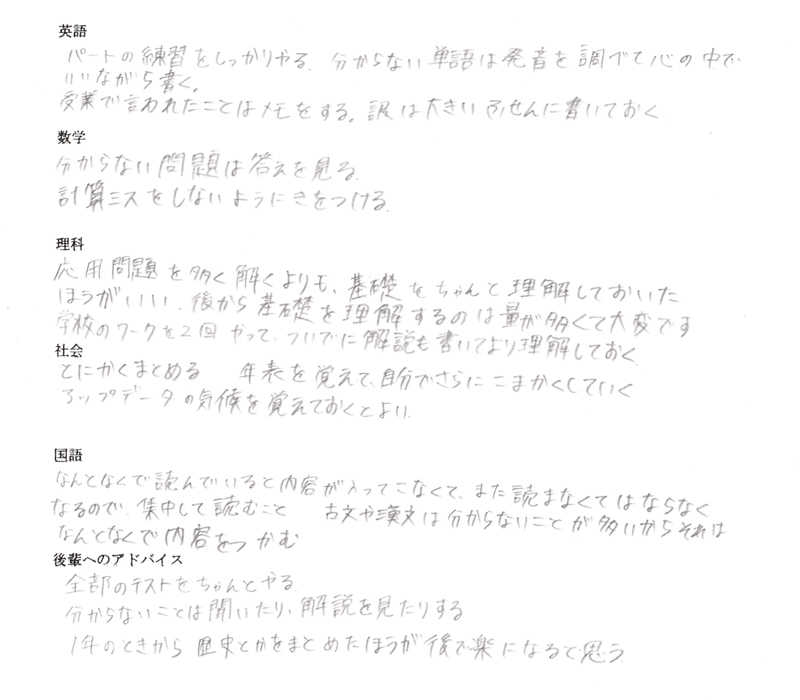 英語
パートの練習をしっかりやる。分からない単語は発音を調べて心の中で
いいながら書く。
受業で言われたことはメモをする。訳は大きいふせんに書いておく
数学
分からない問題は答えを見る。
計算ミスをしないようにきをつける。
理科
応用問題を多く解くよりも、基礎をちゃんと理解しておいた
ほうがいい。後から基礎を理解するのは量が多くて大変です
学校のワークを2回やって、ついでに解説も書いてより理解しておく。
社会
とにかくまとめる 年表を覚えて、自分でさらにこまかくしていく
アップデータの気候を覚えておくとよい。
国語
なんとなくで読んでいると内容が入ってこなくて、また読まなくてはならなく
なるので、集中して読むこと 古文や漢文は分からないことが多いからそれは
なんとなくで内容をつかむ
後輩へのアドバイス
全部のテストをちゃんとやる。
分からないことは聞いたり、解説を見たりする
1年のときから歴史とかをまとめたほうが後で楽になると思う